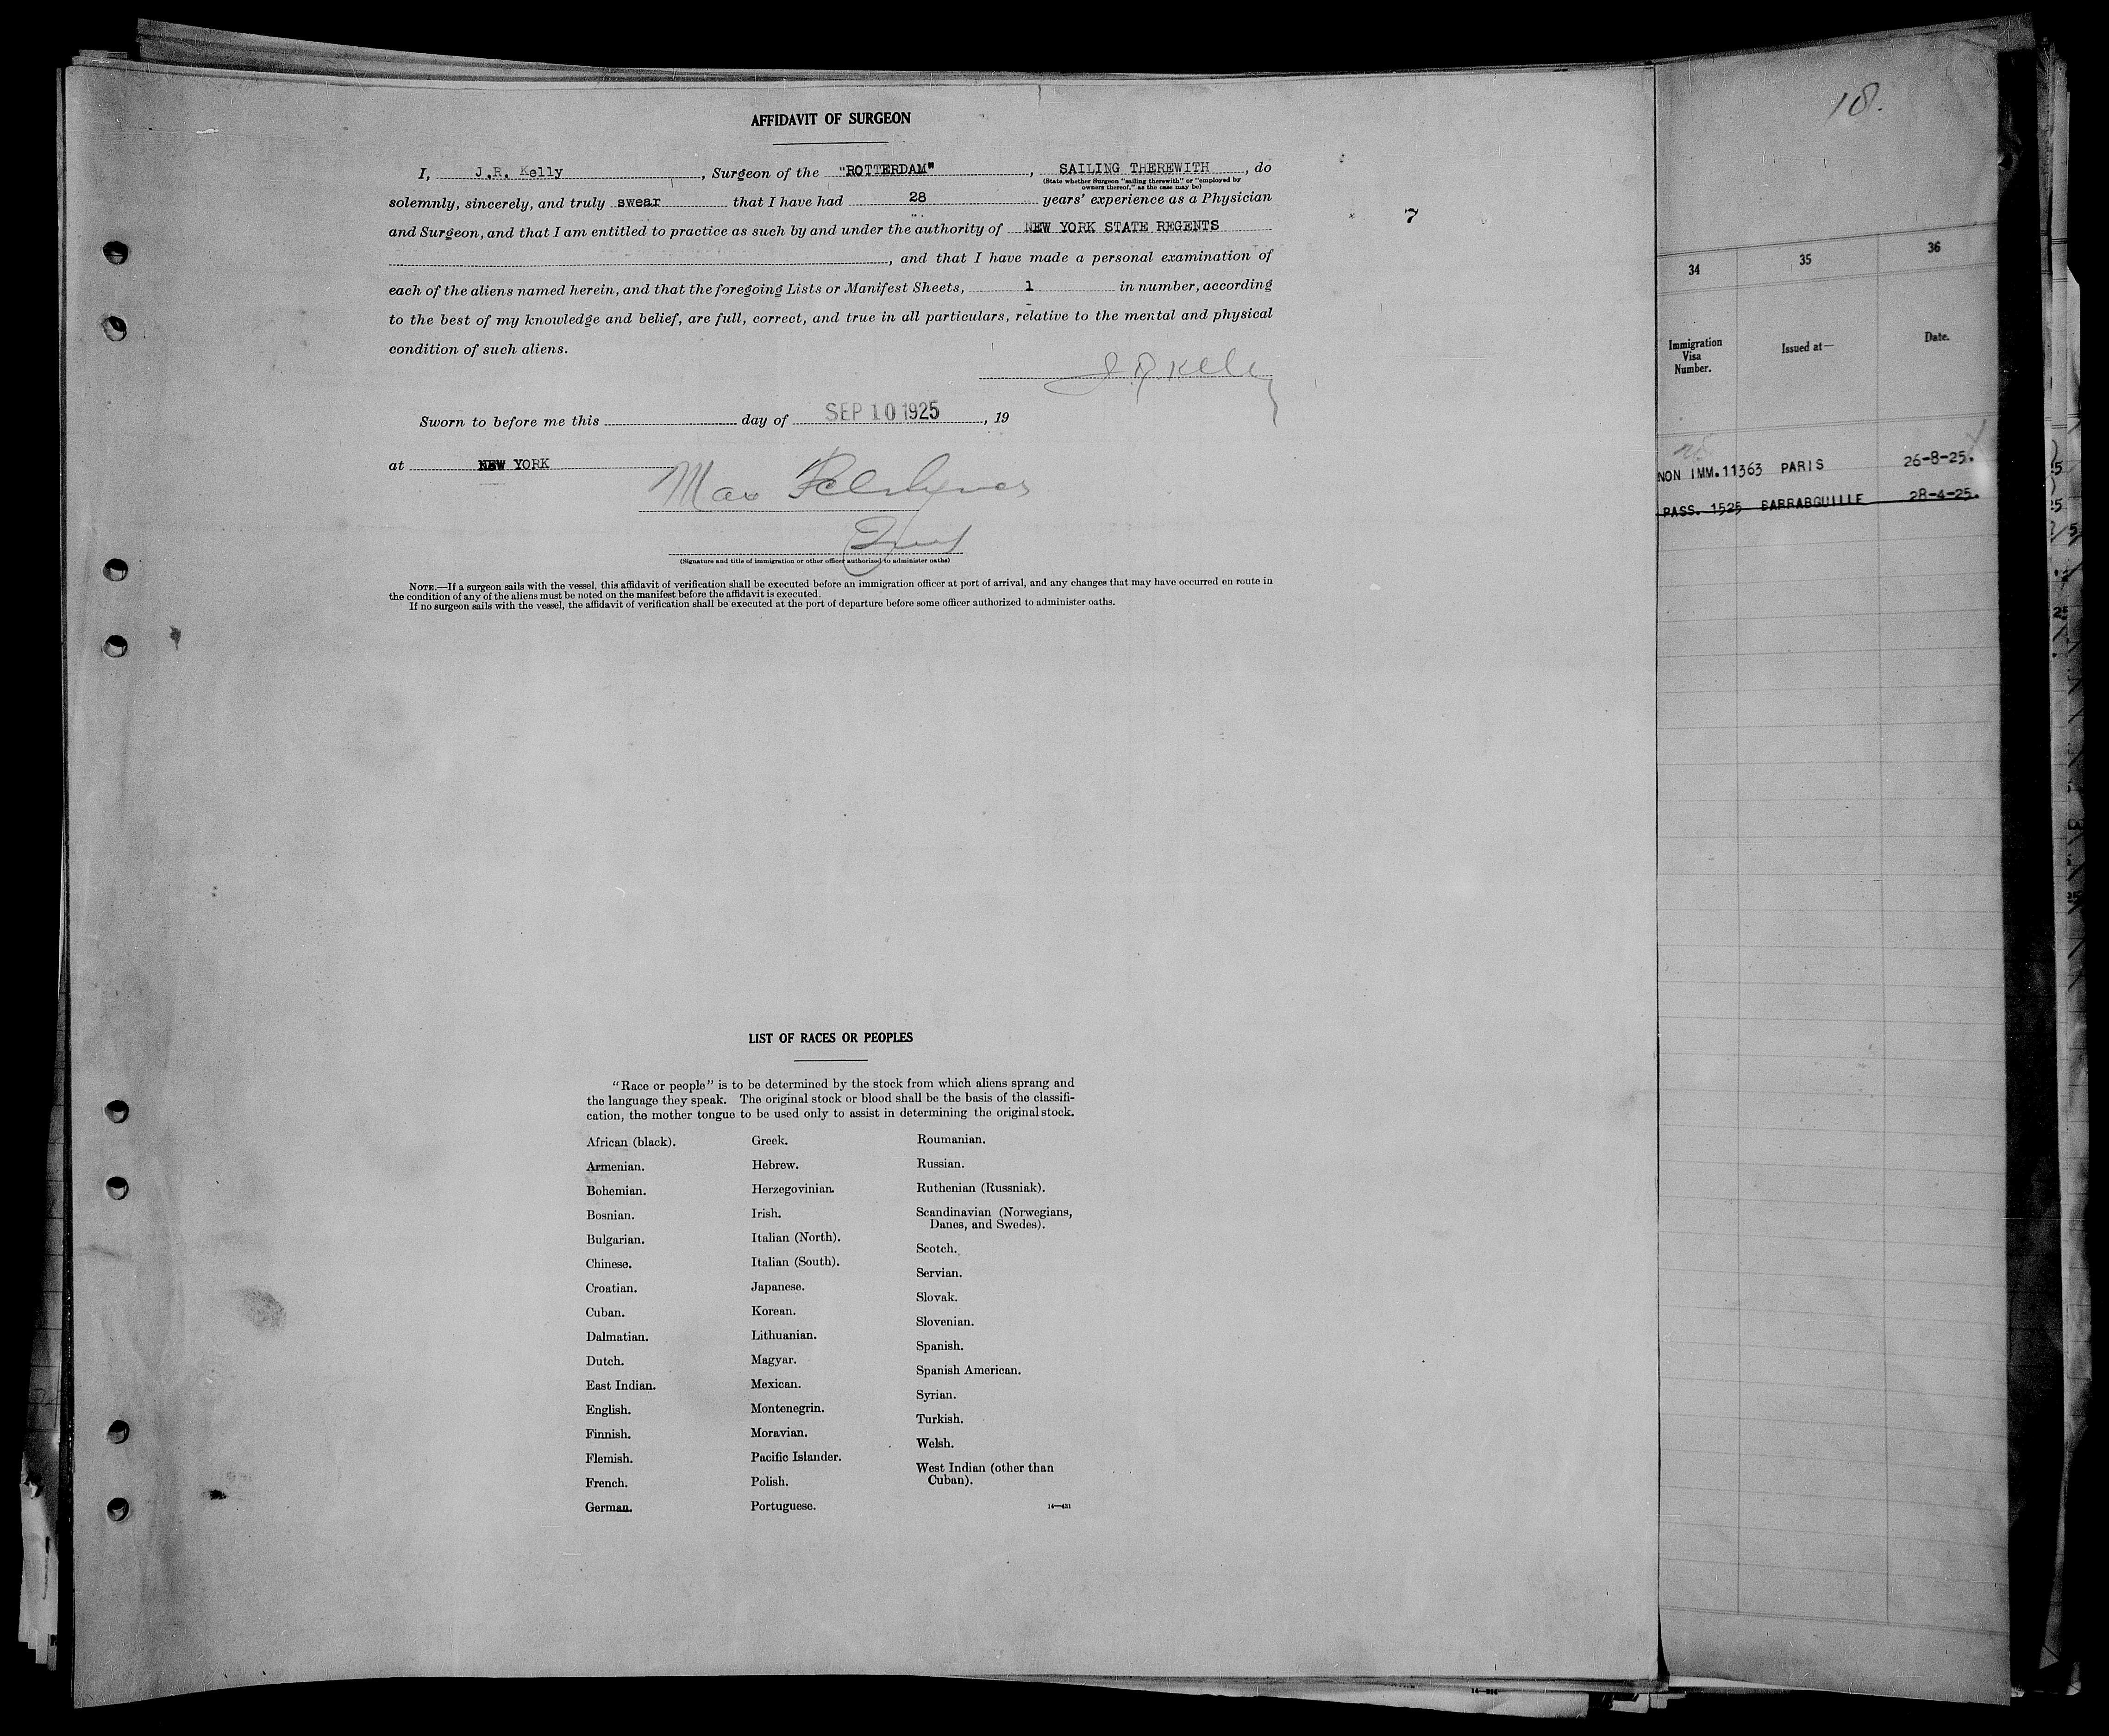 AFFIDAVIT OF SURGEON
I, J.R. Kelly, Surgeon of the "ROTTERDAM", SAILING THEREWITH, do
(State whether Surgeon "sailing therewith" or "employed by
owners thereof," as the case may be)
solemnly, sincerely, and truly swear that I have had 28 years' experience as a Physician
and Surgeon, and that I am entitled to practice as such by and under the authority of NEW YORK STATE REGENTS
, and that I have made a personal examination of
each of the aliens named herein, and that the foregoing Lists or Manifest Sheets, 1 in number, according
to the best of my knowledge and belief, are full, correct, and true in all particulars, relative to the mental and physical
condition of such aliens.
J.R. Kelly
Sworn to before me this day of SEP 10 1925, 19
at NEW YORK
Max
(Signature and title of immigration or other officer authorized to administer oaths)
NOTE.—If a surgeon sails with the vessel, this affidavit of verification shall be executed before an immigration officer at port of arrival, and any changes that may have occurred en route in
the condition of any of the aliens must be noted on the manifest before the affidavit is executed.
If no surgeon sails with the vessel, the affidavit of verification shall be executed at the port of departure before some officer authorized to administer oaths.
7
LIST OF RACES OR PEOPLES
"Race or people" is to be determined by the stock from which aliens sprang and
the language they speak. The original stock or blood shall be the basis of the classifi-
cation, the mother tongue to be used only to assist in determining the original stock.
African (black).
Armenian.
Bohemian.
Bosnian.
Bulgarian.
Chinese.
Croatian.
Cuban.
Dalmatian.
Dutch.
East Indian.
English.
Finnish.
Flemish.
French.
German.
Greek.
Hebrew.
Herzegovinian.
Irish.
Italian (North).
Italian (South).
Japanese.
Korean.
Lithuanian.
Magyar.
Mexican.
Montenegrin.
Moravian.
Pacific Islander.
Polish.
Portuguese.
Roumanian.
Russian.
Ruthenian (Russniak).
Scandinavian (Norwegians,
Danes, and Swedes).
Scotch.
Servian.
Slovak.
Slovenian.
Spanish.
Spanish American.
Syrian.
Turkish.
Welsh.
West Indian (other than
Cuban).
14—431
18.
34 35 36
Immigration
Visa
Number.
Issued at—
Date.
NON IMM.11363 PARIS 26-8-25.
PASS. 1525 BARRABGUILLE 28-4-25.